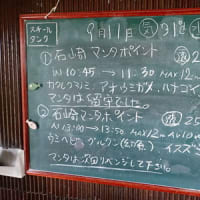 スチール
タンク
9月11日 気 31℃ 水
① 石崎マンタポイント 透20
IN 10:45 → 11:30 MAX12m
カクレクマノミ アオウミガメ ハナゴイ
マンタは留守でした。
② 石崎マンタポイント 透20
IN 13:00 → 13:50 MAX12m AV10m
グルクン イスズミ
マンタは次回リベンジして下さい